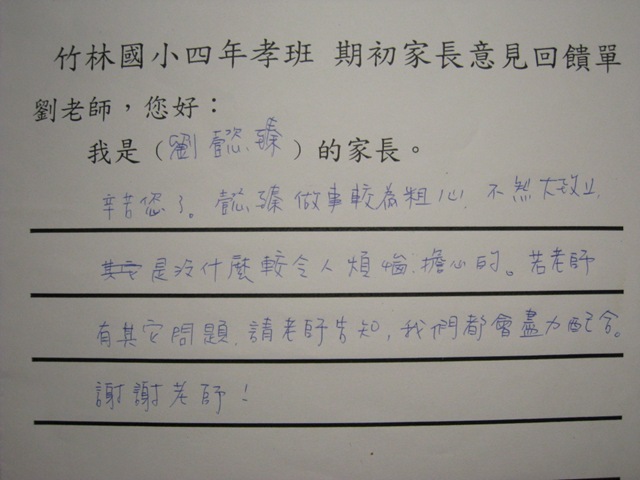 竹林國小四年孝班 期初家長意見回饋單
劉老師，您好：
我是（劉懿臻）的家長。
辛苦您了。懿臻做事較為粗心，不然大致上，
是沒什麼較令人煩惱、擔心的。若老師
有其它問題，請老師告知，我們都會盡力配合。
謝謝老師！